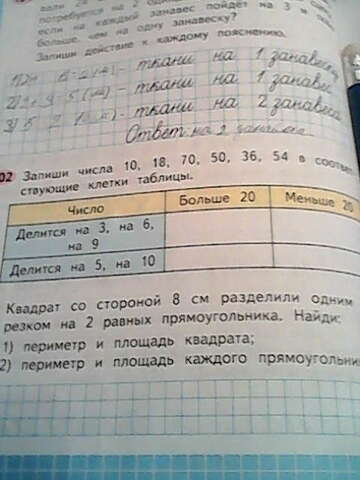 потребуется на 2
если на каждый занавес пойдёт на 3 м
больше, чем на одну занавеску?
Запиши действие к каждому пояснению.
ткани на 1 занавеску
ткани на 1 занавес
ткани на 2 занавеса
Ответ на 2
02 Запиши числа 10, 18, 70, 50, 36, 54 в соответ
ствующие клетки таблицы.
Число Больше 20 Меньше 20
Делится на 3, на 6,
на 9
Делится на 5, на 10
Квадрат со стороной 8 см разделили одним
резком на 2 равных прямоугольника. Найди:
1) периметр и площадь квадрата;
2) периметр и площадь каждого прямоугольни